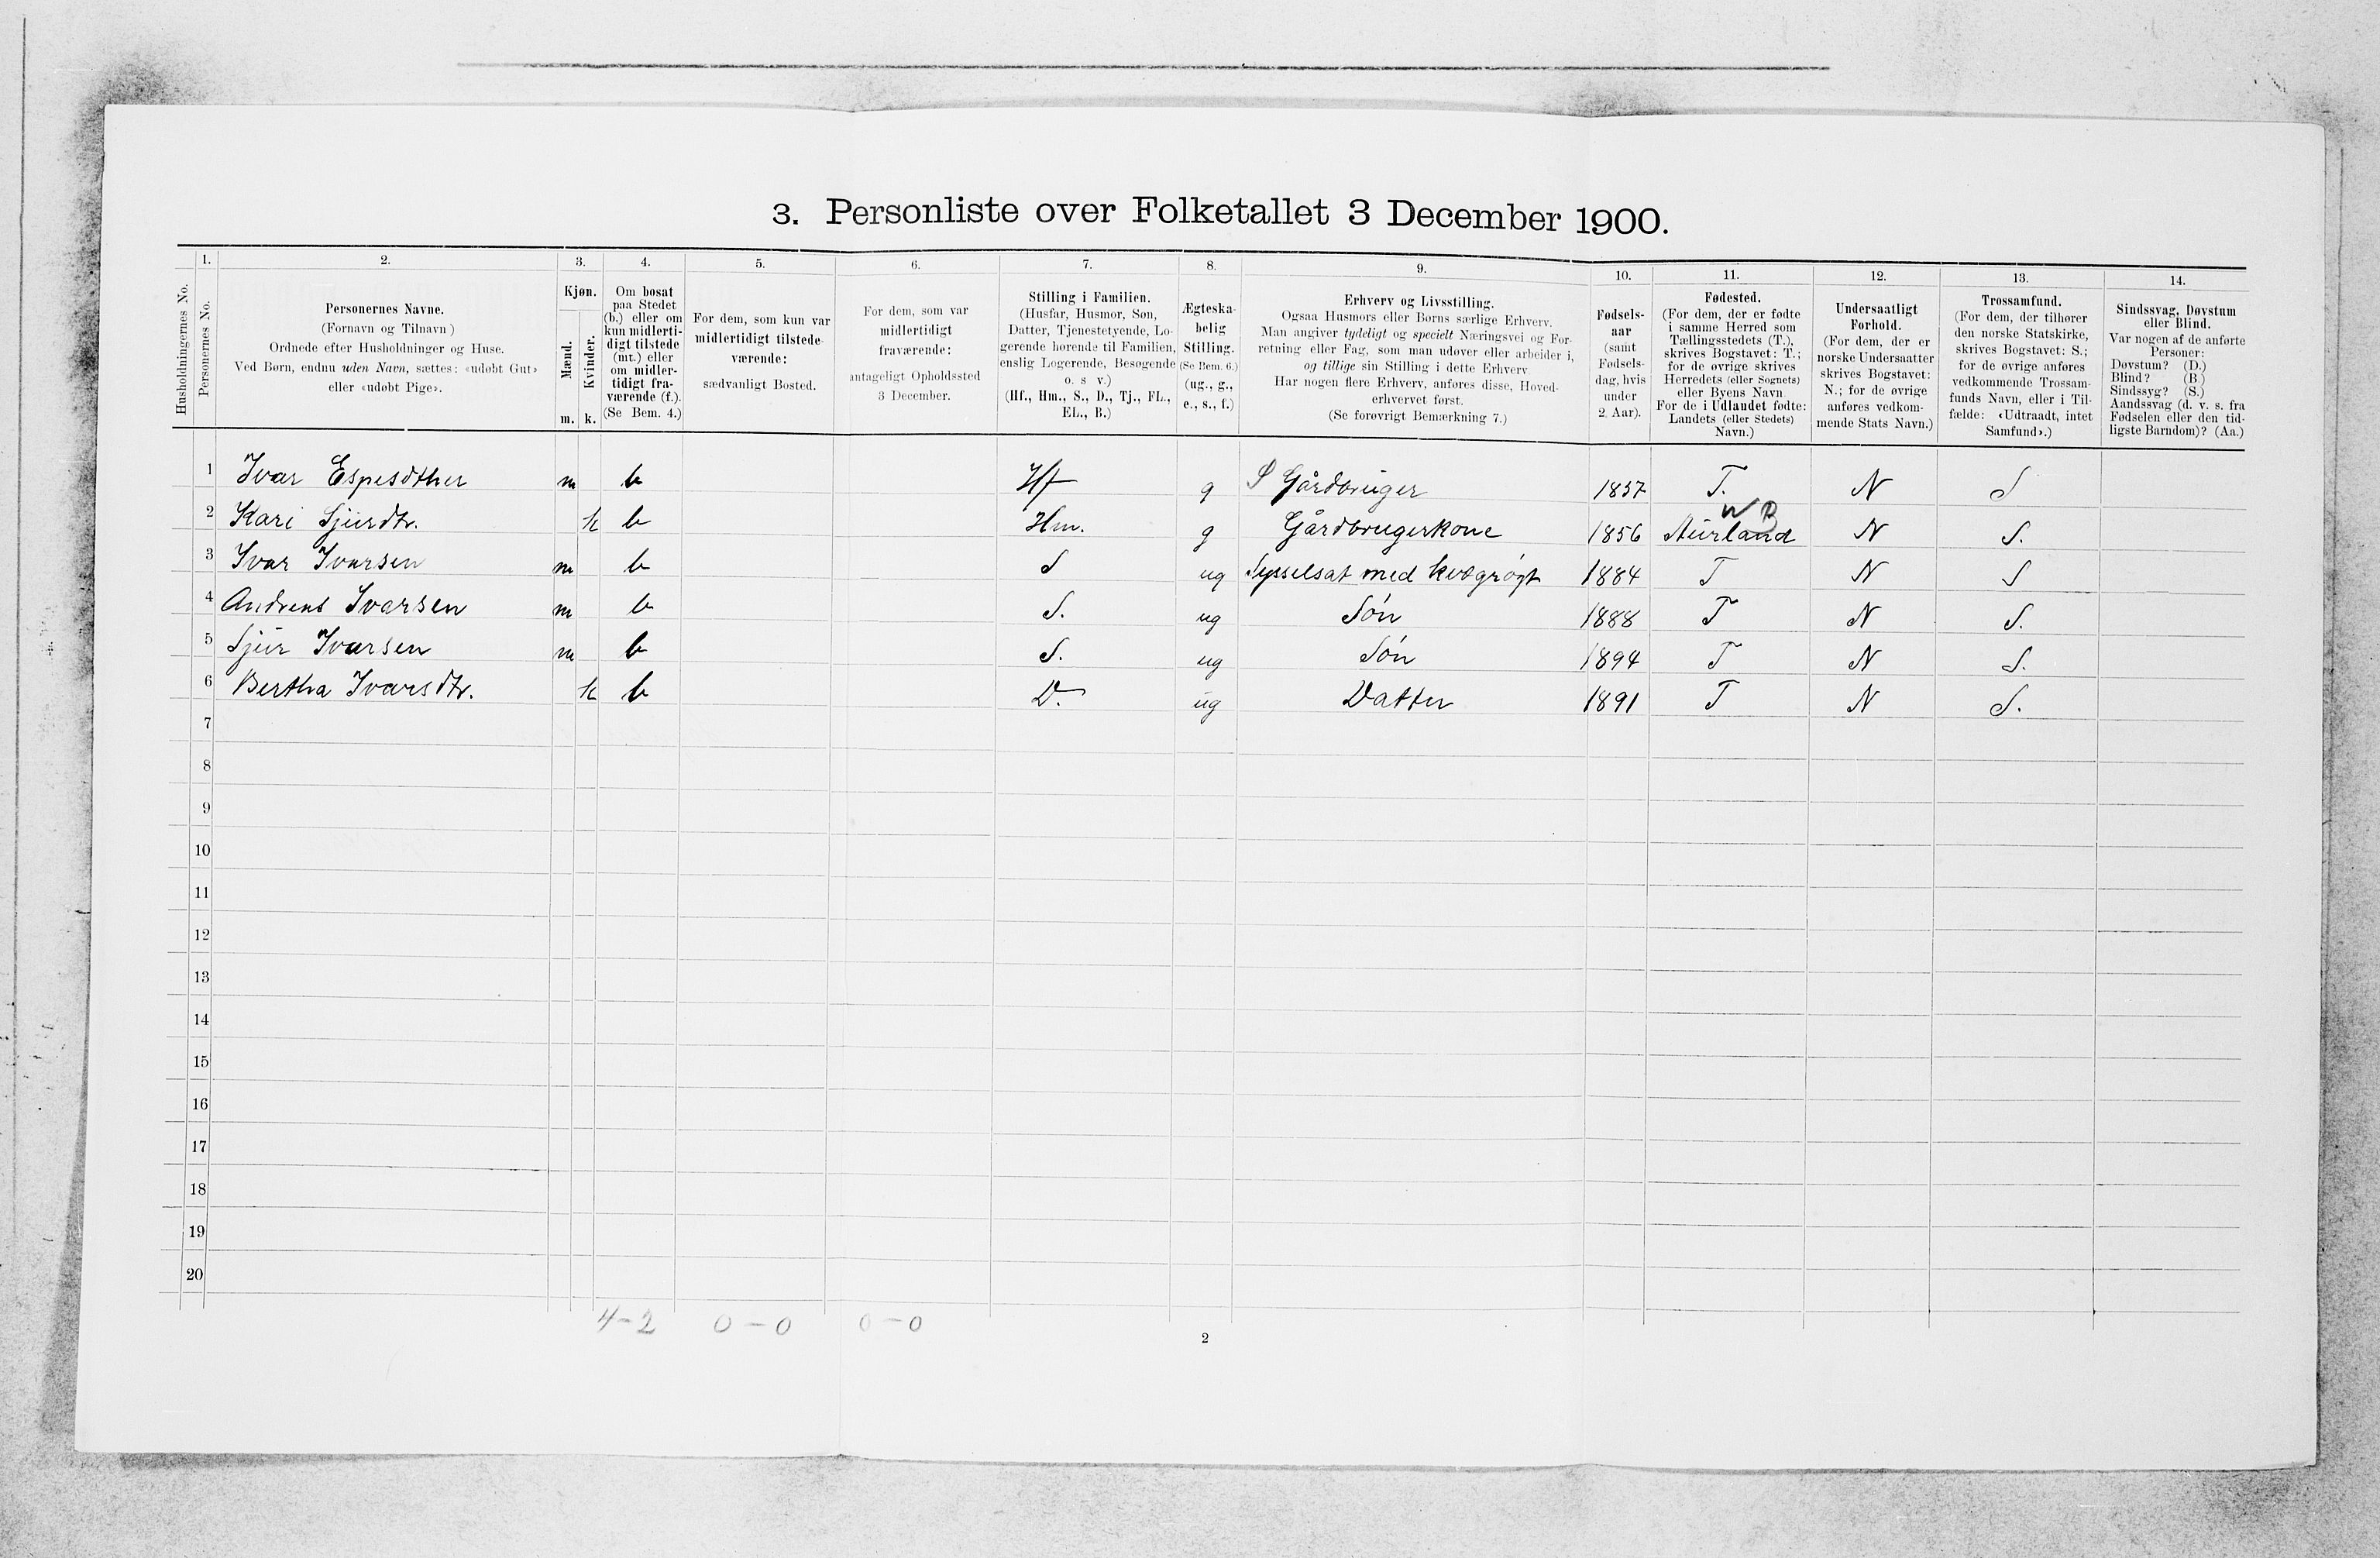 3. Personliste over Folketallet 3 December 1900.
1. 2. 3. 4. 5. 6. 7. 8. 9. 10. 11. 12. 13. 14.
Husholdningernes No.
Personernes No.
Personernes Navne.
(Fornavn og Tilnavn)
Ordnede efter Husholdninger og Huse.
Ved Børn, endnu uden Navn, sættes: «udøbt Gut»
eller «udøbt Pige».
Kjøn.
Mænd.
m.
Kvinder.
k.
Om bosat
paa Stedet
(b.) eller om
kun midlerti-
digt tilstede
(mt.) eller
om midler-
tidigt fra-
værende (f.).
(Se Bem. 4.)
For dem, som kun var
midlertidigt tilstede-
værende:
sædvanligt Bosted.
For dem, som var
midlertidigt
fraværende:
antageligt Opholdssted
3 December.
Stilling i Familien.
(Husfar, Husmor, Søn,
Datter, Tjenestetyende, Lo-
gerende hørende til Familien,
enslig Logerende, Besøgende
o. s v.)
(Hf., Hm., S., D., Tj., FL.,
EL., B.)
Ægteska-
belig
Stilling.
(Se Bem. 6.)
(ug., g.,
e., s., f.)
Erhverv og Livsstilling.
Ogsaa Husmors eller Børns særlige Erhverv.
Man angiver tydeligt og specielt Næringsvei og For-
retning eller Fag, som man udøver eller arbeider i,
og tillige sin Stilling i dette Erhverv
Har nogen flere Erhverv, anføres disse, Hoved-
erhvervet først.
(Se forøvrigt Bemærkning 7.)
Fødsels-
aar
(samt
Fødsels-
dag, hvis
under
2 Aar).
Fødested.
(For dem, der er fødte
i samme Herred som
Tællingsstedets (T.),
skrives Bogstavet: T.;
for de øvrige skrives
Herredets (eller Sognets)
eller Byens Navn
For de i Udlandet fødte:
Landets (eller Stedets)
Navn.)
Undersaatligt
Forhold.
(For dem, der er
norske Undersaatter
skrives Bogstavet:
N.; for de øvrige
anføres vedkom-
mende Stats Navn.)
Trossamfund.
(For dem, der tilhører
den norske Statskirke,
skrives Bogstavet: S.;
for de øvrige anføres
vedkommende Trossam-
funds Navn, eller i Til-
fælde: «Udtraadt, intet
Samfund».)
Sindssvag, Døvstum
eller Blind.
Var nogen af de anførte
Personer:
Døvstum? (D.)
Blind? (B.)
Sindssyg? (S.)
Aandssvag (d. v. s. fra
Fødselen eller den tid-
ligste Barndom)? (Aa.)
1 Ivar Espesdther m b Hf g S Gårdbruger 1857 T. N S
2 Kari Sjurdtr. k b Hm. g Gårdbrugerkone 1856 Aurland N S.
3 Ivar Ivarsen m b S ug Sysselsat med kvægrøgt 1884 T N S
4 Andreas Ivarsen m b S. ug Søn 1888 T N S.
5 Sjur Ivarsen m b S. ug Søn 1894 T N S.
6 Bertha Ivarsdtr. k b D. ug Datter 1891 T N S.
7
8
9
10
11
12
13
14
15
16
17
18
19
20
4-2 0-0 0-0
2